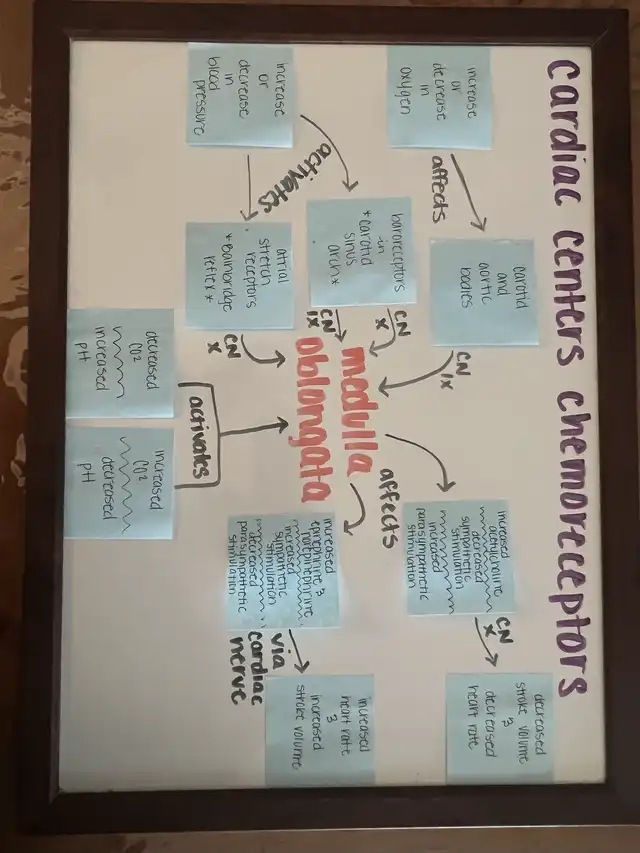 cardiac centers chemoreceptors
increase
or
decrease
in
oxygen
affects
carotid
and
aortic
bodies
CN
IX
increase
or
decrease
in
blood
pressure
activates
baroreceptors
-in
*carotid
sinus
arch*
CN
X
CN
IX
atrial
stretch
receptors
*Bainbridge
reflex*
CN
X
medulla
oblongata
decreased
CO²
increased
pH
increased
CO²
decreased
pH
activates
affects
increased
acetylcholine
decreased
sympathetic
stimulation
increased
parasympathetic
stimulation
CN
X
decreased
stroke volume
&
decreased
heart rate
increased
epinephrine &
norepinephrine
increased
sympathetic
stimulation
decreased
parasympathetic
stimulation
via
cardiac
nerve
increased
heart rate
&
increased
stroke volume